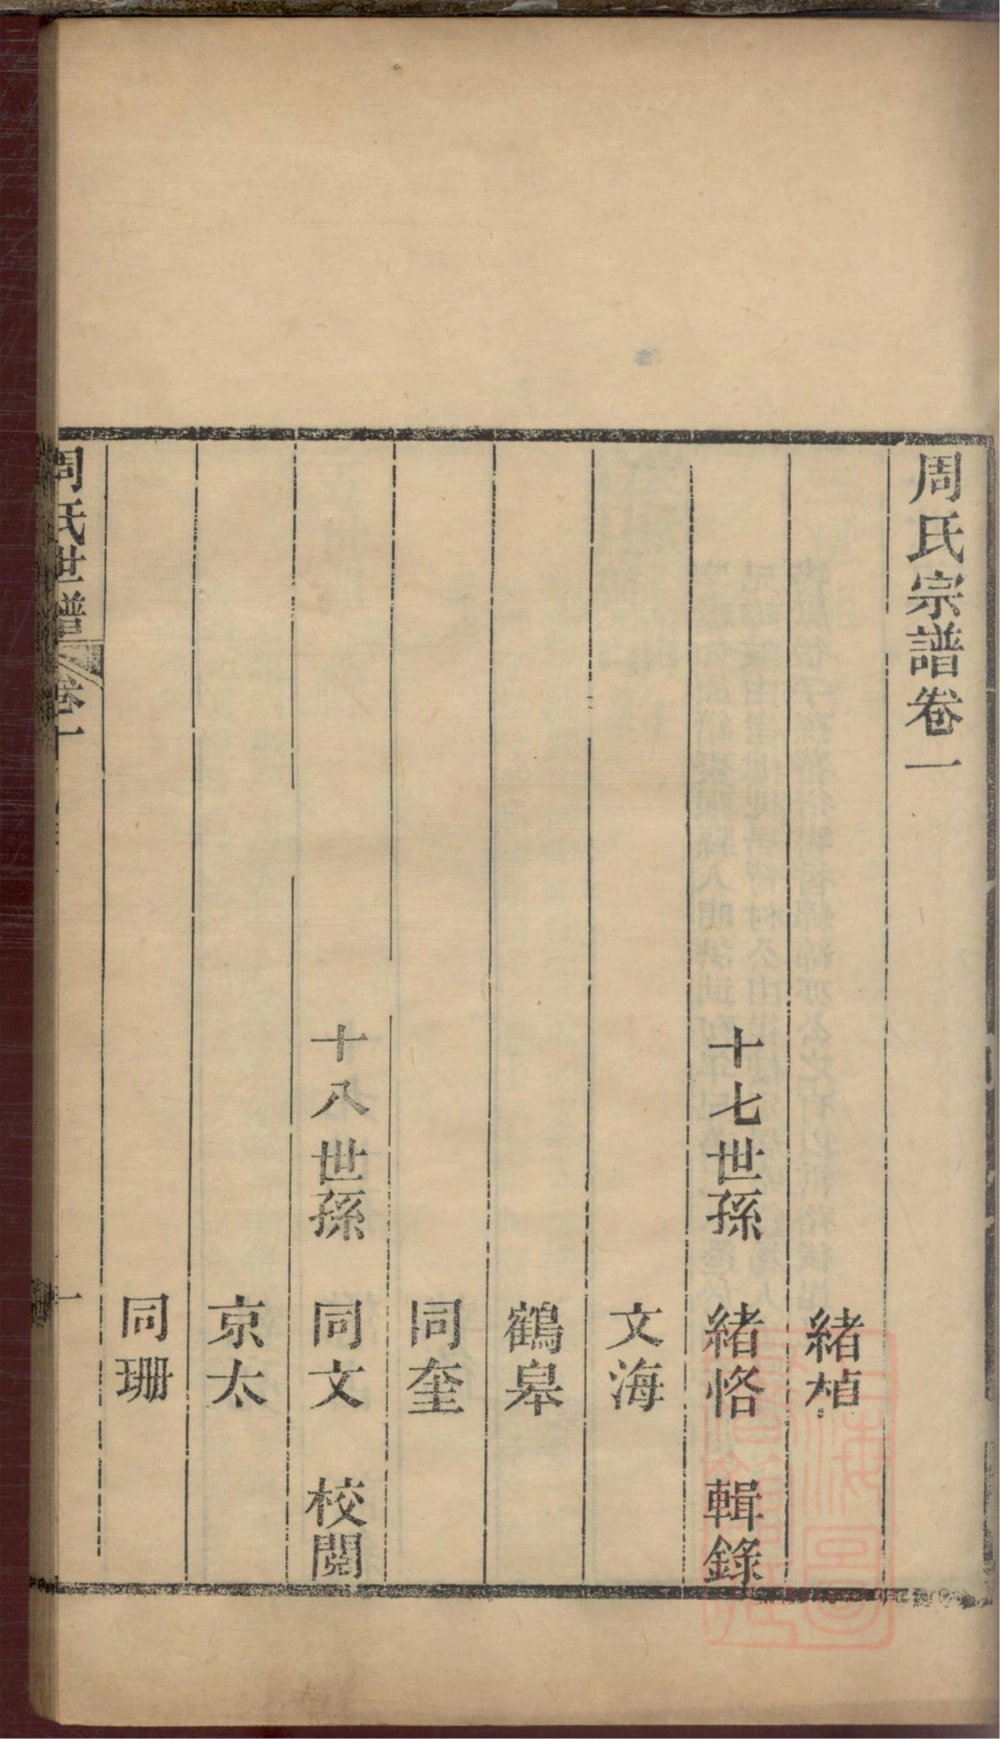 周氏宗譜卷一
緒楨
十七世孫 緒恪 輯錄
文海
鶴皋
同奎
十八世孫 同文 校閱
京太
同珊
周氏世譜 卷一 一